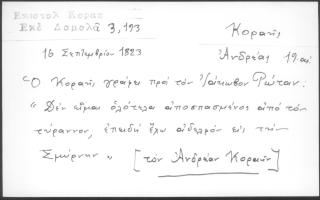 Επιστολ Κοραη
Εκδ Δαμαλᾶ 3, 193
Κοραῆς
Ἀνδρέας 19. αι.
16 Σεπτεμβρίου 1823
Ὁ Κοραῆς γράφει πρὸ τὸν Ἰάκωβον Ρώταν:
"Δὲν εἶμαι ὁλότελα ἀποσπασμένος ἀπὸ τὸν
τύραννον, ἐπειδὴ ἔχω ἀδελφὸν εἰς τὴν
Σμύρνην" [τὸν Ἀνδρέαν Κοραῆν]